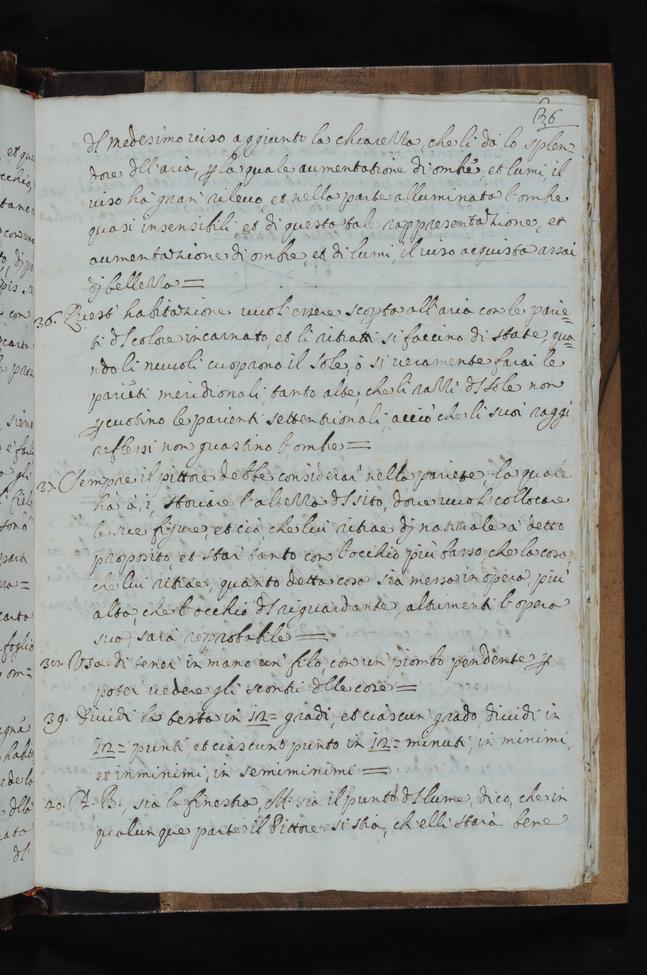 36
dl medesimo uiso aggiunto la chiarezza, che li dà lo splen=
dore dll'aria, p la quale aumentatione di ombre, et lumi, il
uiso ha gran' rileuo, et nella parte alluminata l'ombre
quasi insensibili, et di questa tale rappresentazione, et
aumentazione di ombre, et di lumi, il uiso acquista assai
dj bellezza =
36. Quest' habitazione uuol essere scopta all'aria con le parie=
ti dl colore incarnato, et li ritratti si faccino di state, qua=
ndo li nuuoli cuoprono il sole, ò si ueramente farai le
parieti meridionali, tanto alte, che li razzi dl sole non
pcuotino le parienti settentrionali, acciò che li suoi raggi
reflessi non guastino l'ombre =
37. Sempre il pittore debbe considerar' nella pariete, la quale
ha à, istoriare l'altezza dl sito, doue uuole collocare
le sue figure, et ciò, che lui ritrae dj naturale à detto
proposito, et star' tanto con l'occhio più basso, che la cosa,
che lui ritrae, quanto detta cosa sia messa in opera, più
alta, che l'occhio dl riguardante, altrimenti l'opera
sua, sarà reprobabile =
38. Usa di tener' in mano un' filo, con un' piombo pendente p
poter' uedere gli scontri dlle cose =
39. Diuidi la testa in 12 = gradi, et ciascun' grado diuidi in
12 = punti et ciascuno punto in 12 = minuti, in minimi,
et in minimi, in semiminimi =
40. A. B., sia la finestra, M. sia il punto dl lume, dico, che in
qualunque parte il Pittore si stia, ch'elli starà bene